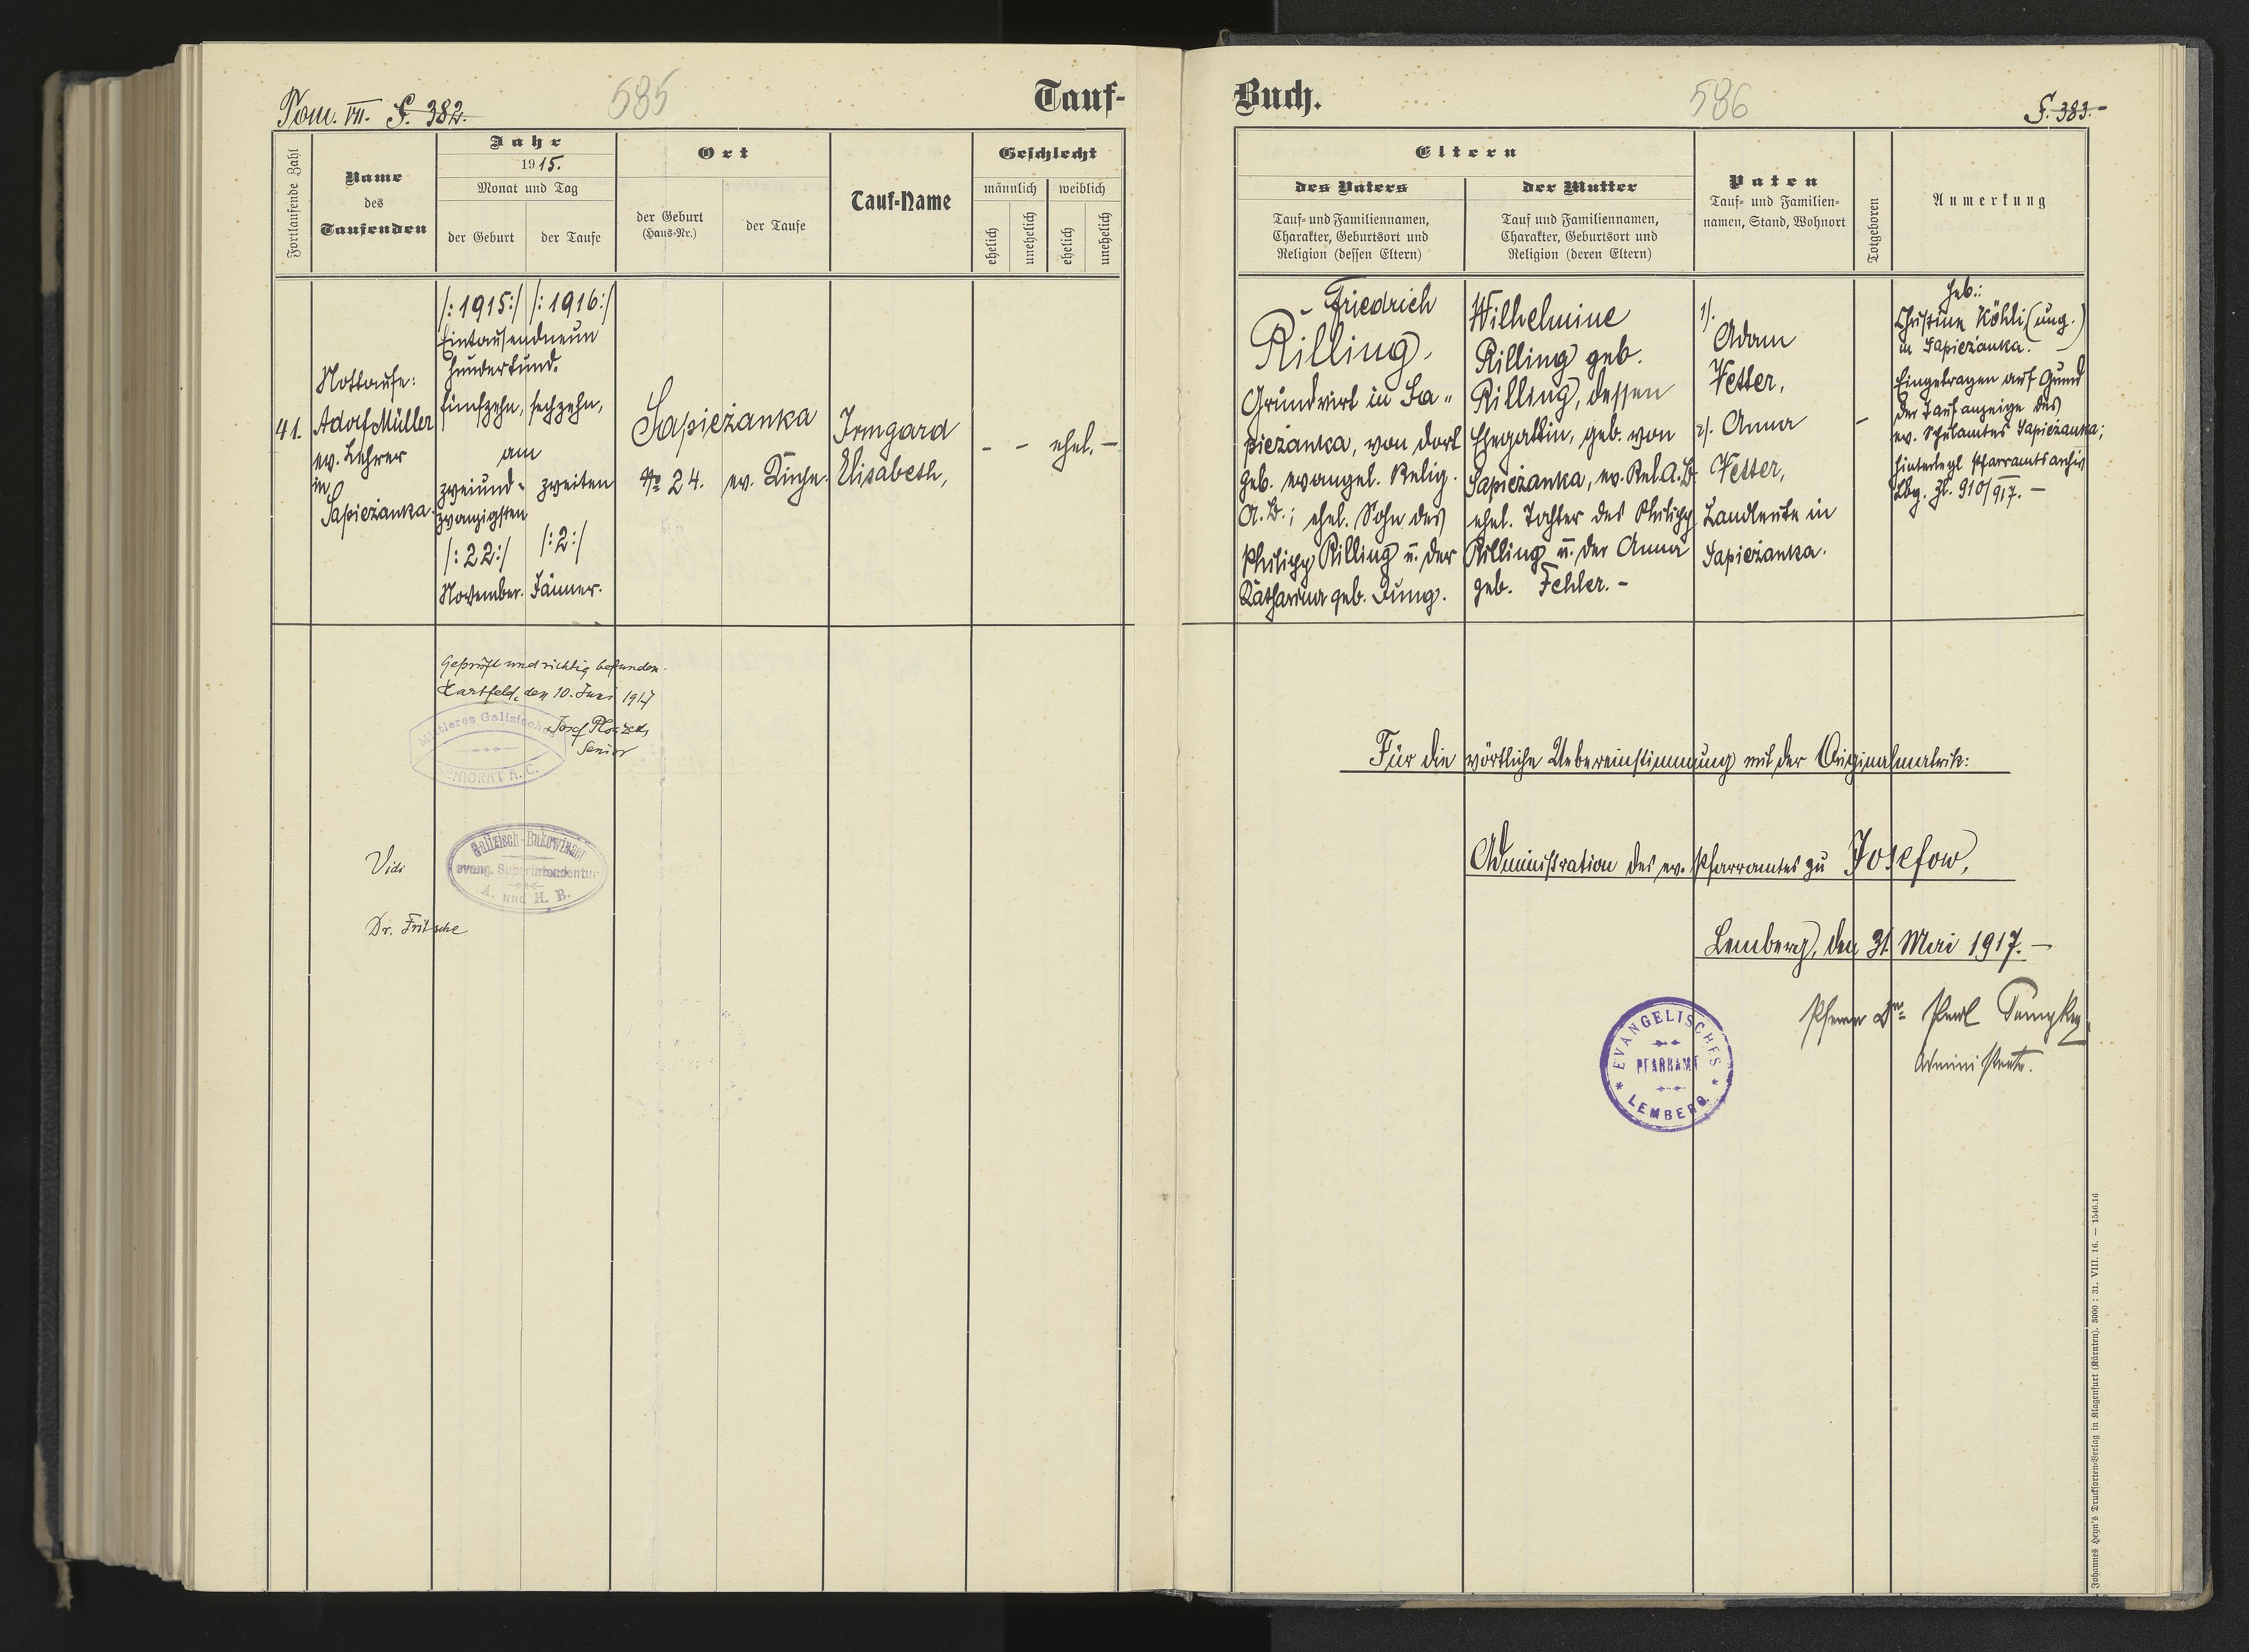 Tom. VII. S. 382.
585
Tauf-
Fortlaufende Zahl
Name
des
Taufenden
Jahr
1915.
Monat und Tag
der Geburt
der Taufe
Ort
der Geburt
(Haus-Nr.)
der Taufe
Tauf-Name
Geschlecht
männlich
weiblich
ehelich
unehelich
ehelich
unehelich
41.
Nottaufe:
Adolf Müller
ev. Lehrer
in
Sapieżanka.
/:1915:/ /:1916:/
Eintausendneun
hundertund.
fünfzehn, sechzehn,
am
zweiund- zweiten
zwanzigsten
/:22:/ /:2:/
November. Jänner.
Sapieżanka
No 24. ev. Kirche.
Irmgard
Elisabeth,
- - ehel. -
Geprüft und richtig befunden.
den 10. Juni 1917
Josef
Senior
Mittleres Galizisches
SENIORAT A. C.
Vidi
Galizisch-Bukowinaer
evang. Superintendentur
A. und H. B.
Dr. Fritsche
Buch.
586
S. 383.-
Eltern
des Vaters
Tauf- und Familiennamen,
Charakter, Geburtsort und
Religion (dessen Eltern)
der Mutter
Tauf und Familiennamen,
Charakter, Geburtsort und
Religion (deren Eltern)
Paten
Tauf- und Familien-
namen, Stand, Wohnort
Totgeboren
Anmerkung
Friedrich
Rilling,
Grundwirt in Sa-
pieżanka, von dort
geb. evangel. Relig.
A.B.; ehel. Sohn des
Philipp Rilling u. der
Katharina geb. Jung.
Wilhelmine
Rilling geb.
Rilling, dessen
Ehegattin, geb. von
Sapieżanka, ev. Rel. A.B.
ehel. Tochter des Philipp
Rilling u. der Anna
geb. Fehler. -
1/.
Adam
Vetter,
2/. Anna
Vetter,
Landleute in
Sapieżanka.
-
Heb.:
Christine Köhli (ung.)
in Sapieżanka.
Eingetragen auf Grund
der Taufanzeige des
ev. Schulamtes Sapieżanka;
hinterlegt Pfarramtsarchiv
Lbg. Zl. 910/917. -
Für die wörtliche Uebereinstimmung mit der Originalmatrik:
Administration des ev. Pfarramtes zu Josefow,
Lemberg, den 31. Mai 1917. -
Pfarrer Dr.
Administrator.
EVANGELISCHES
PFARRAMT
LEMBERG
Johannes Heyn's Drucksorten-Verlag in Klagenfurt (Kärnten). 3000 : 31. VIII. 16. — 1546.16